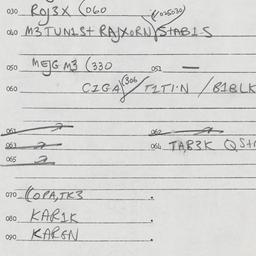 030 ROJ3X (060
040 M3TUN1St RAJXORN STAB1S
050 MEJG M3 (330 051 —
060 C2GA 306 T2T1N / B1BLK
061
062
063
064 TAB3K QSt
065
070 (OPA,TK3 .
080 KAR1K .
090 KARGN .